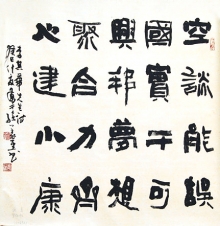 空談能誤
國實干可
興邦夢想
聚合力齊
心建小康